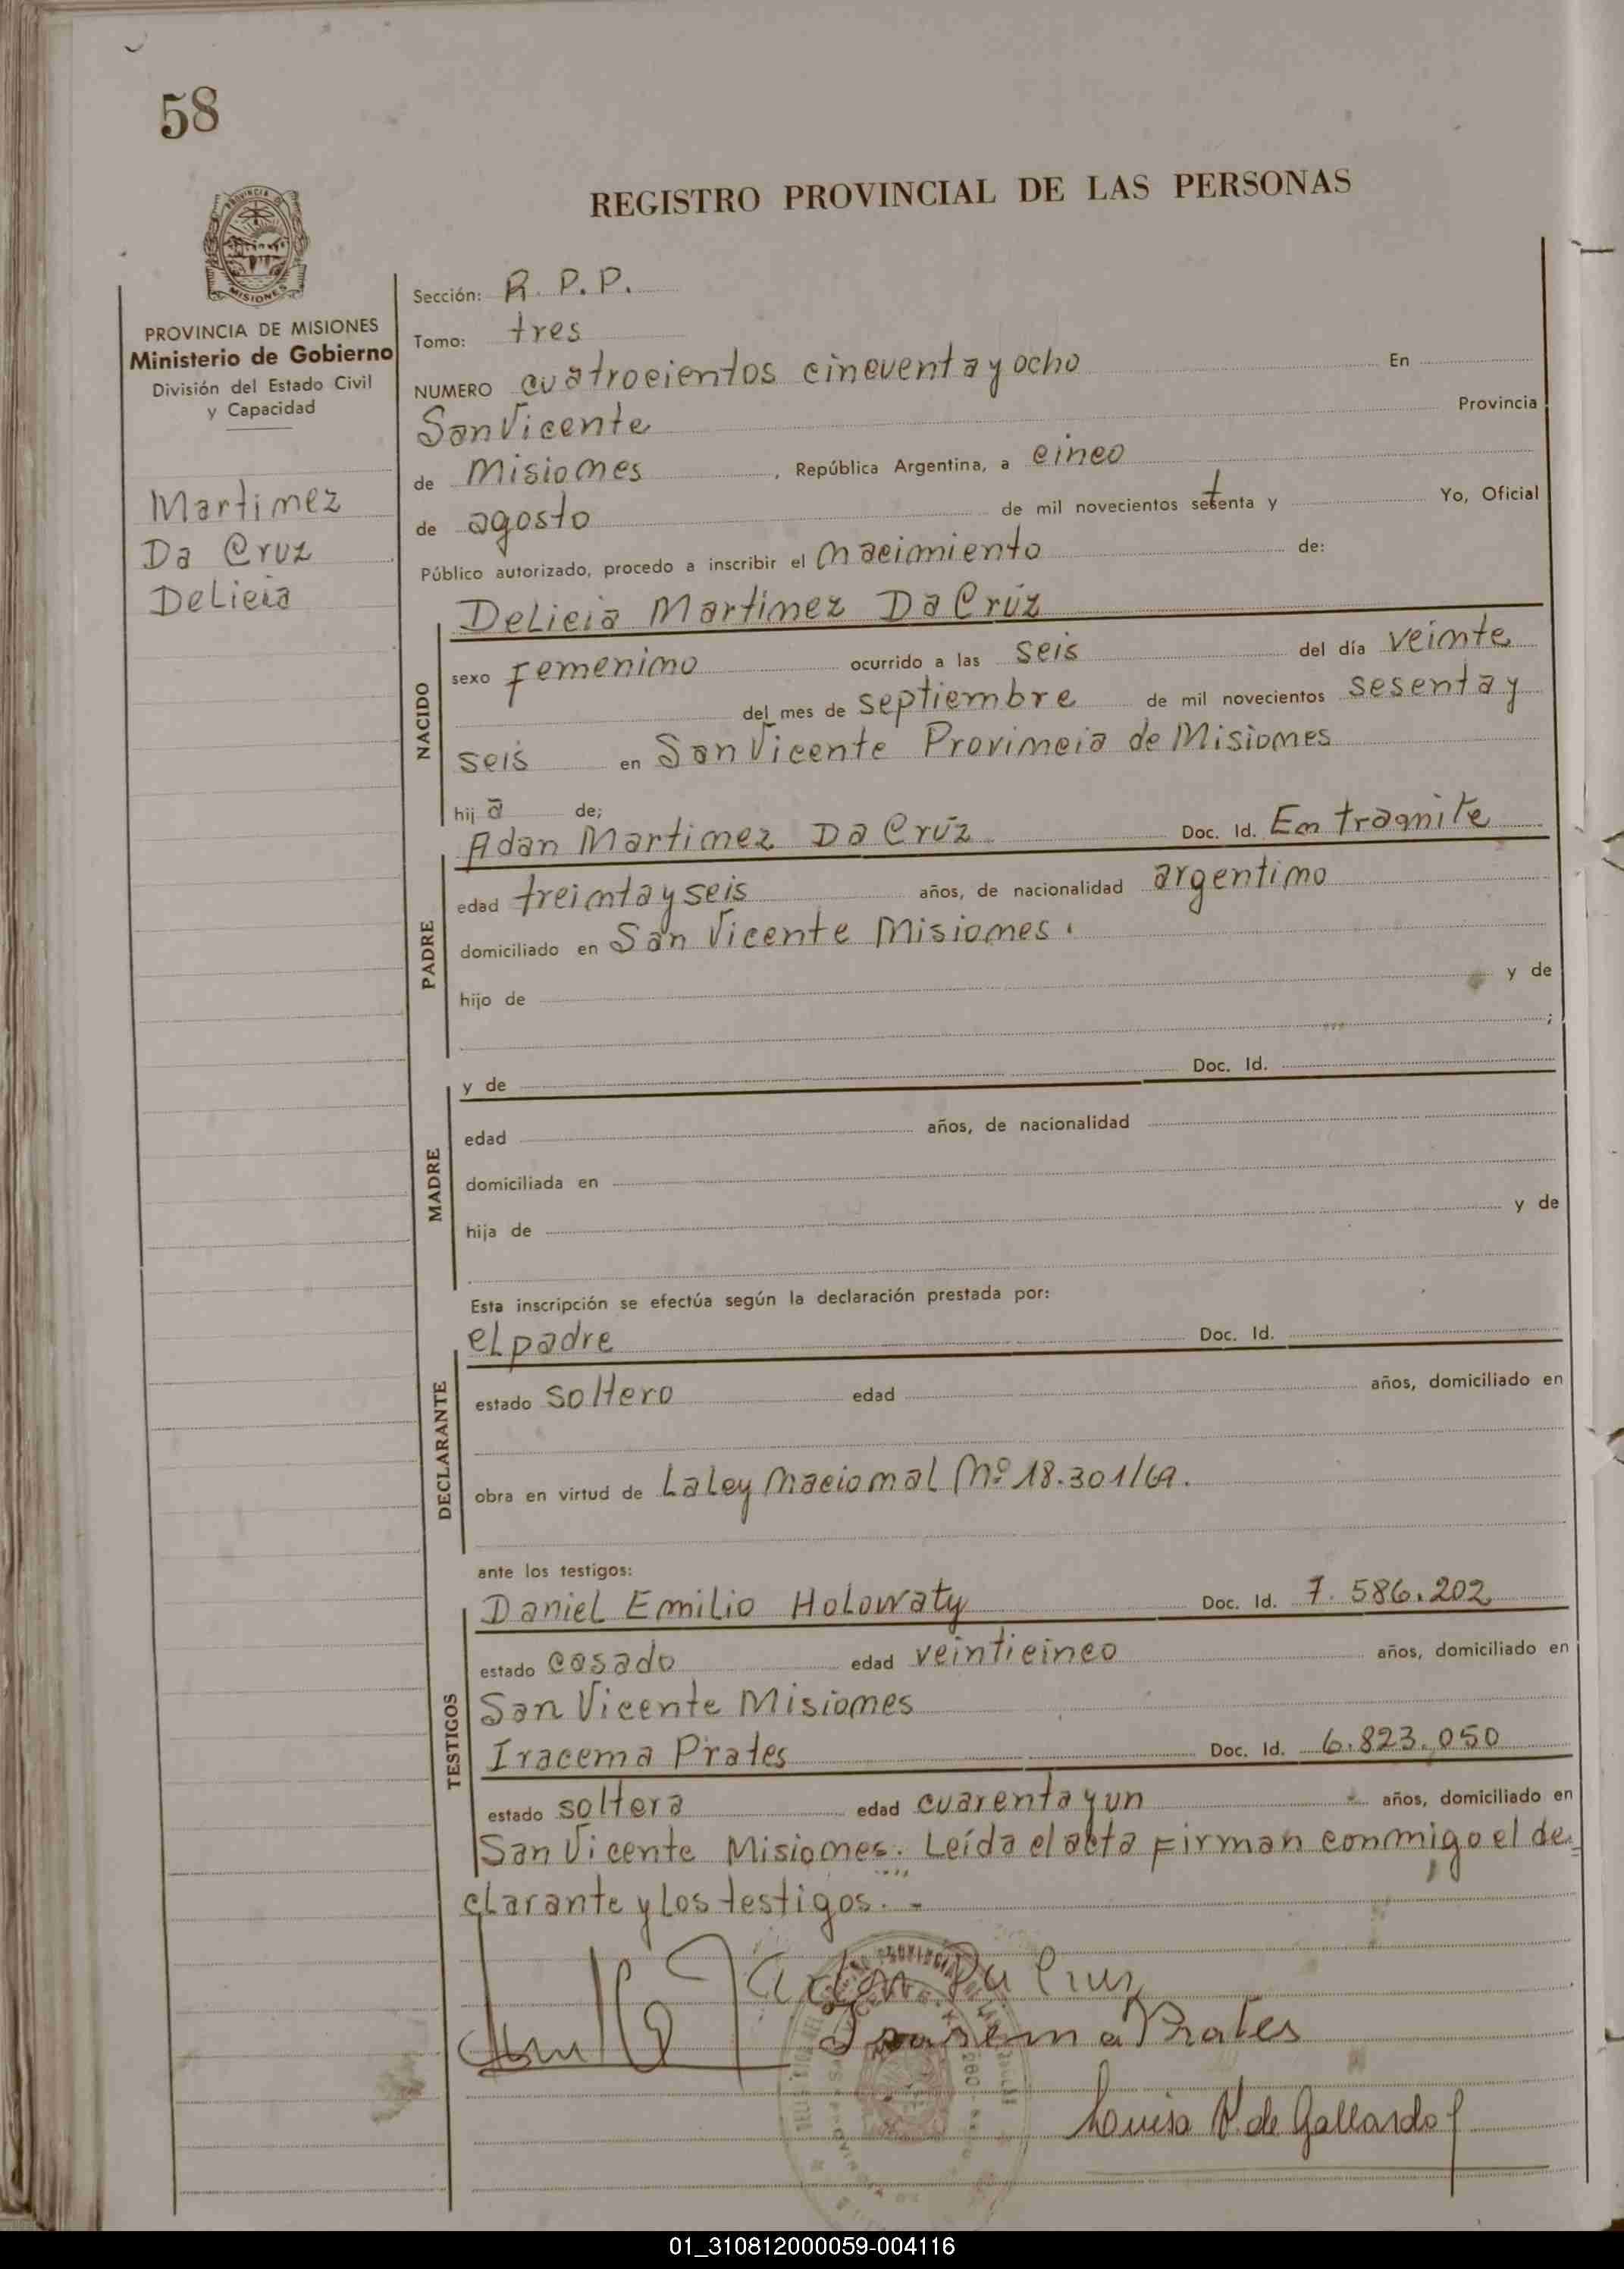 58
REGISTRO PROVINCIAL DE LAS PERSONAS
PROVINCIA
MISIONES
PROVINCIA DE MISIONES
Ministerio de Gobierno
División del Estado Civil
y Capacidad
Martinez
Da Cruz
Delicia
Sección: R. P. P.
Tomo: tres
NUMERO cuatrocientos cincuenta y ocho En
San Vicente Provincia
de Misiones, República Argentina, a cinco
de agosto de mil novecientos setenta y Yo, Oficial
Público autorizado, procedo a inscribir el nacimiento de:
NACIDO
Delicia Martinez Da Cruz
sexo femenino ocurrido a las seis del día veinte
del mes de septiembre de mil novecientos sesenta y
seis en San Vicente Provincia de Misiones
hija de;
PADRE
Adan Martinez Da Cruz Doc. Id. En tramite
edad treinta y seis años, de nacionalidad argentino
domiciliado en San Vicente Misiones.
hijo de y de
;
MADRE
y de Doc. Id.
edad años, de nacionalidad
domiciliada en
hija de y de
Esta inscripción se efectúa según la declaración prestada por:
DECLARANTE
el padre Doc. Id.
estado soltero edad años, domiciliado en
obra en virtud de La Ley Nacional Nº 18.301/69.
ante los testigos:
TESTIGOS
Daniel Emilio Holowaty Doc. Id. 7.586.202
estado casado edad veinticinco años, domiciliado en
San Vicente Misiones
Iracema Prates Doc. Id. 6.823.050
estado soltera edad cuarenta y un años, domiciliado en
San Vicente Misiones. Leída el acta firman conmigo el de-
clarante y los testigos. -
Adan Da Cruz
Irasema Prates
Louisa V. de Gallardo
01_310812000059-004116